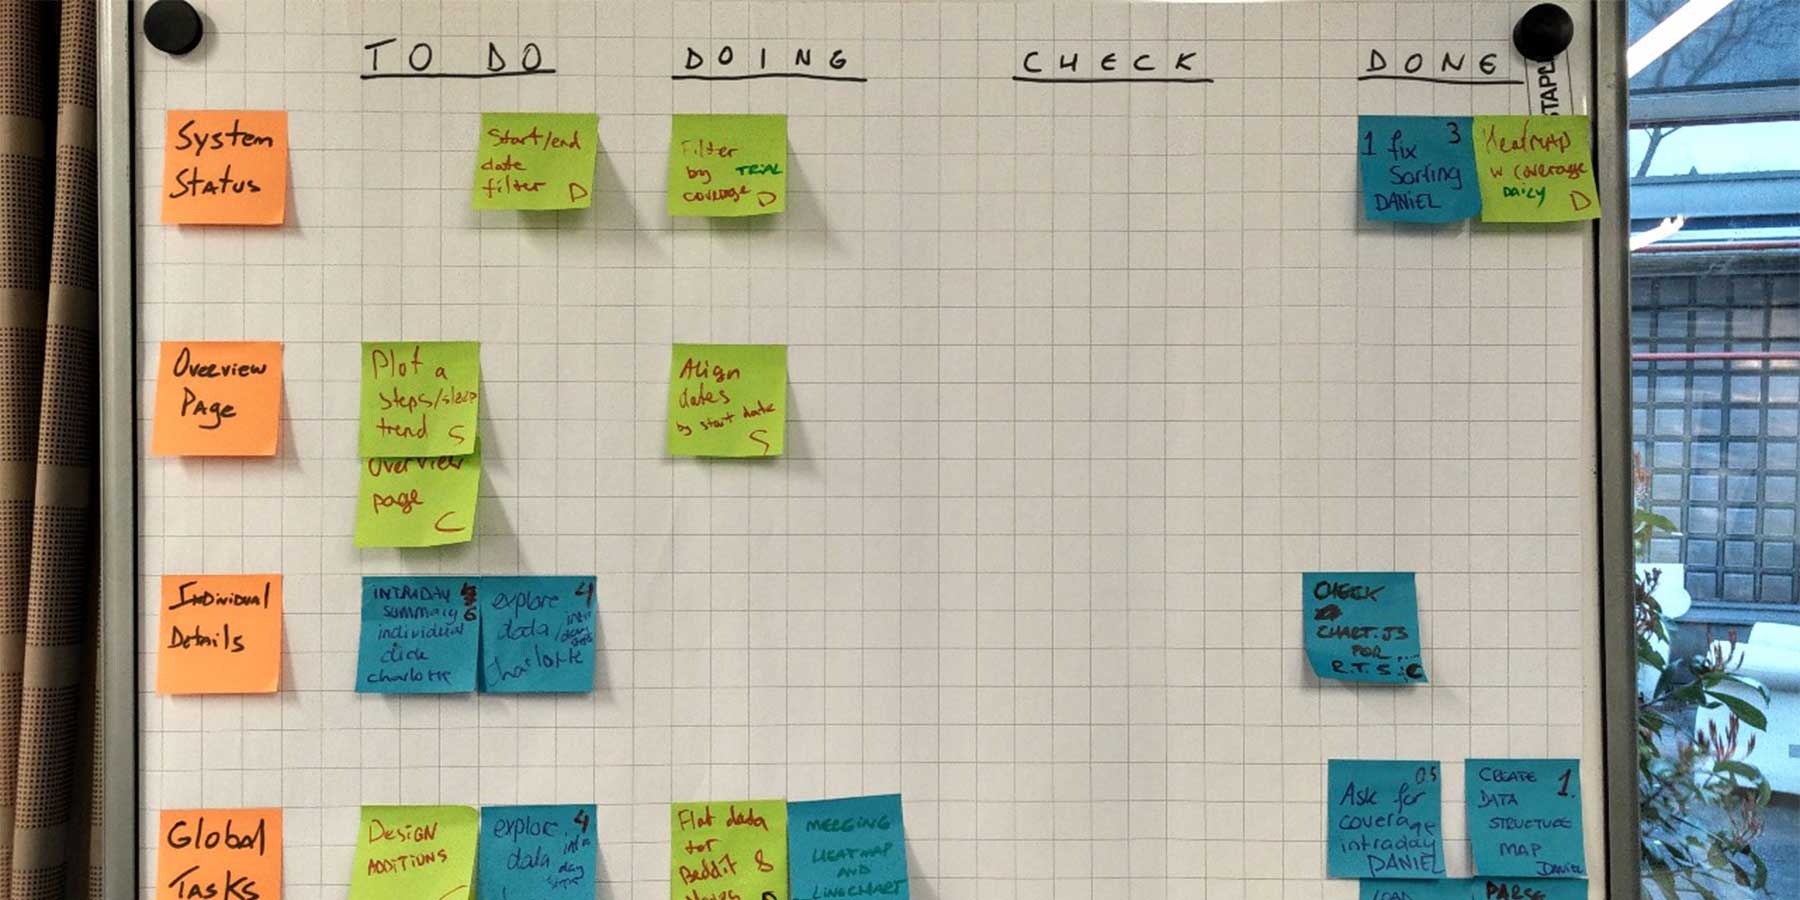 TO DO
DOING
CHECK
DONE
STAPL
System
Status
Start/end
date
filter D
Filter
by TRIAL
coverage D
1 fix 3
Sorting
DANIEL
HeatMAP
w coverage
DAILY D
Overview
Page
Plot a
steps/sleep
trend S
Overview
page
C
Align
dates
by start date
S
Individual
Details
INTRADAY
summary 6
individual
click
charlotte
explore 4
data
day
charlotte
CHECK
CHART.JS
FOR ...
R.T.S :C
Global
Tasks
DESIGN
ADDITIONS
explore 4
data
day
Flat data
for
Reddit &
MERGING
HEATMAP
AND
LINECHART
0.5
Ask for
coverage
intraday
DANIEL
CREATE 1.
DATA
STRUCTURE
MAP
Daniel
LOAD
PARSE